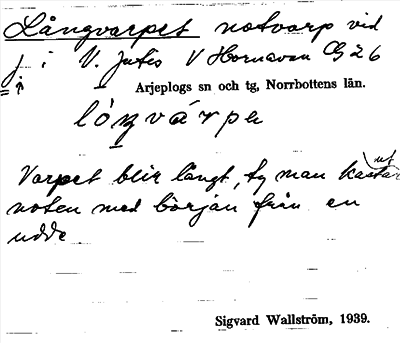 Långvarpet notvarp vid
j i V. Jutis V Hornavan Gg 26
= i
Arjeplogs sn och tg, Norrbottens län.
lóŋvárpe
Varpet blir långt, ty man kastar ut
noten med början från en
udde
Sigvard Wallström, 1939.